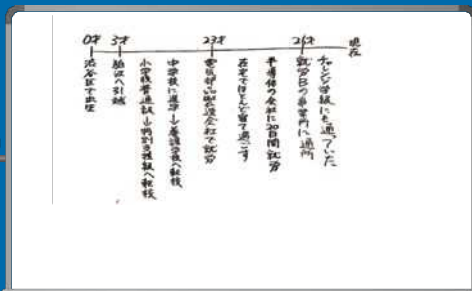 0才
3才
23才
26才
現在
渋谷区で出生
狛江へ引越
小学校普通級→特別支援級へ転校
中学校に進学→養護学校へ転校
電気部品製造会社で就労
在宅でほとんど寝て過ごす
半導体の会社に20日間就労
就労Bの事業所に通所
チャレンジ学級にも通っていた